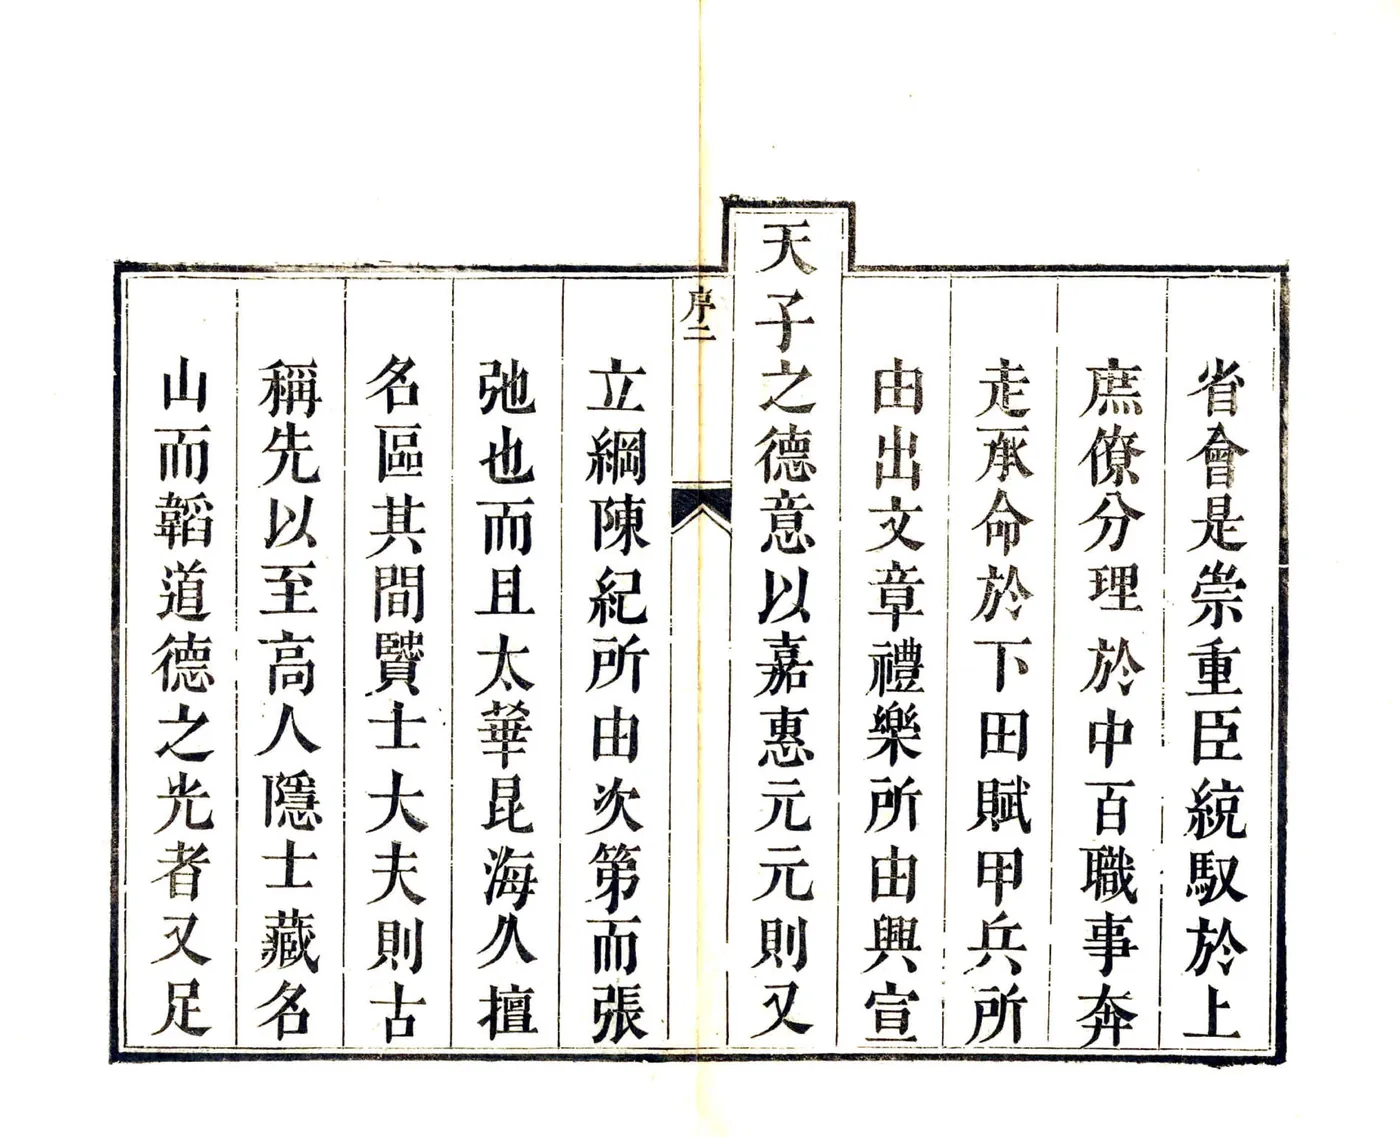 省會是崇重臣統馭於上
庶僚分理於中百職事奔
走承命於下田賦甲兵所
由出文章禮樂所由興宣
天子之德意以嘉惠元元則又
序二
立綱陳紀所由次第而張
弛也而且太華昆海久擅
名區其間賢士大夫則古
稱先以至高人隱士藏名
山而韜道德之光者又足